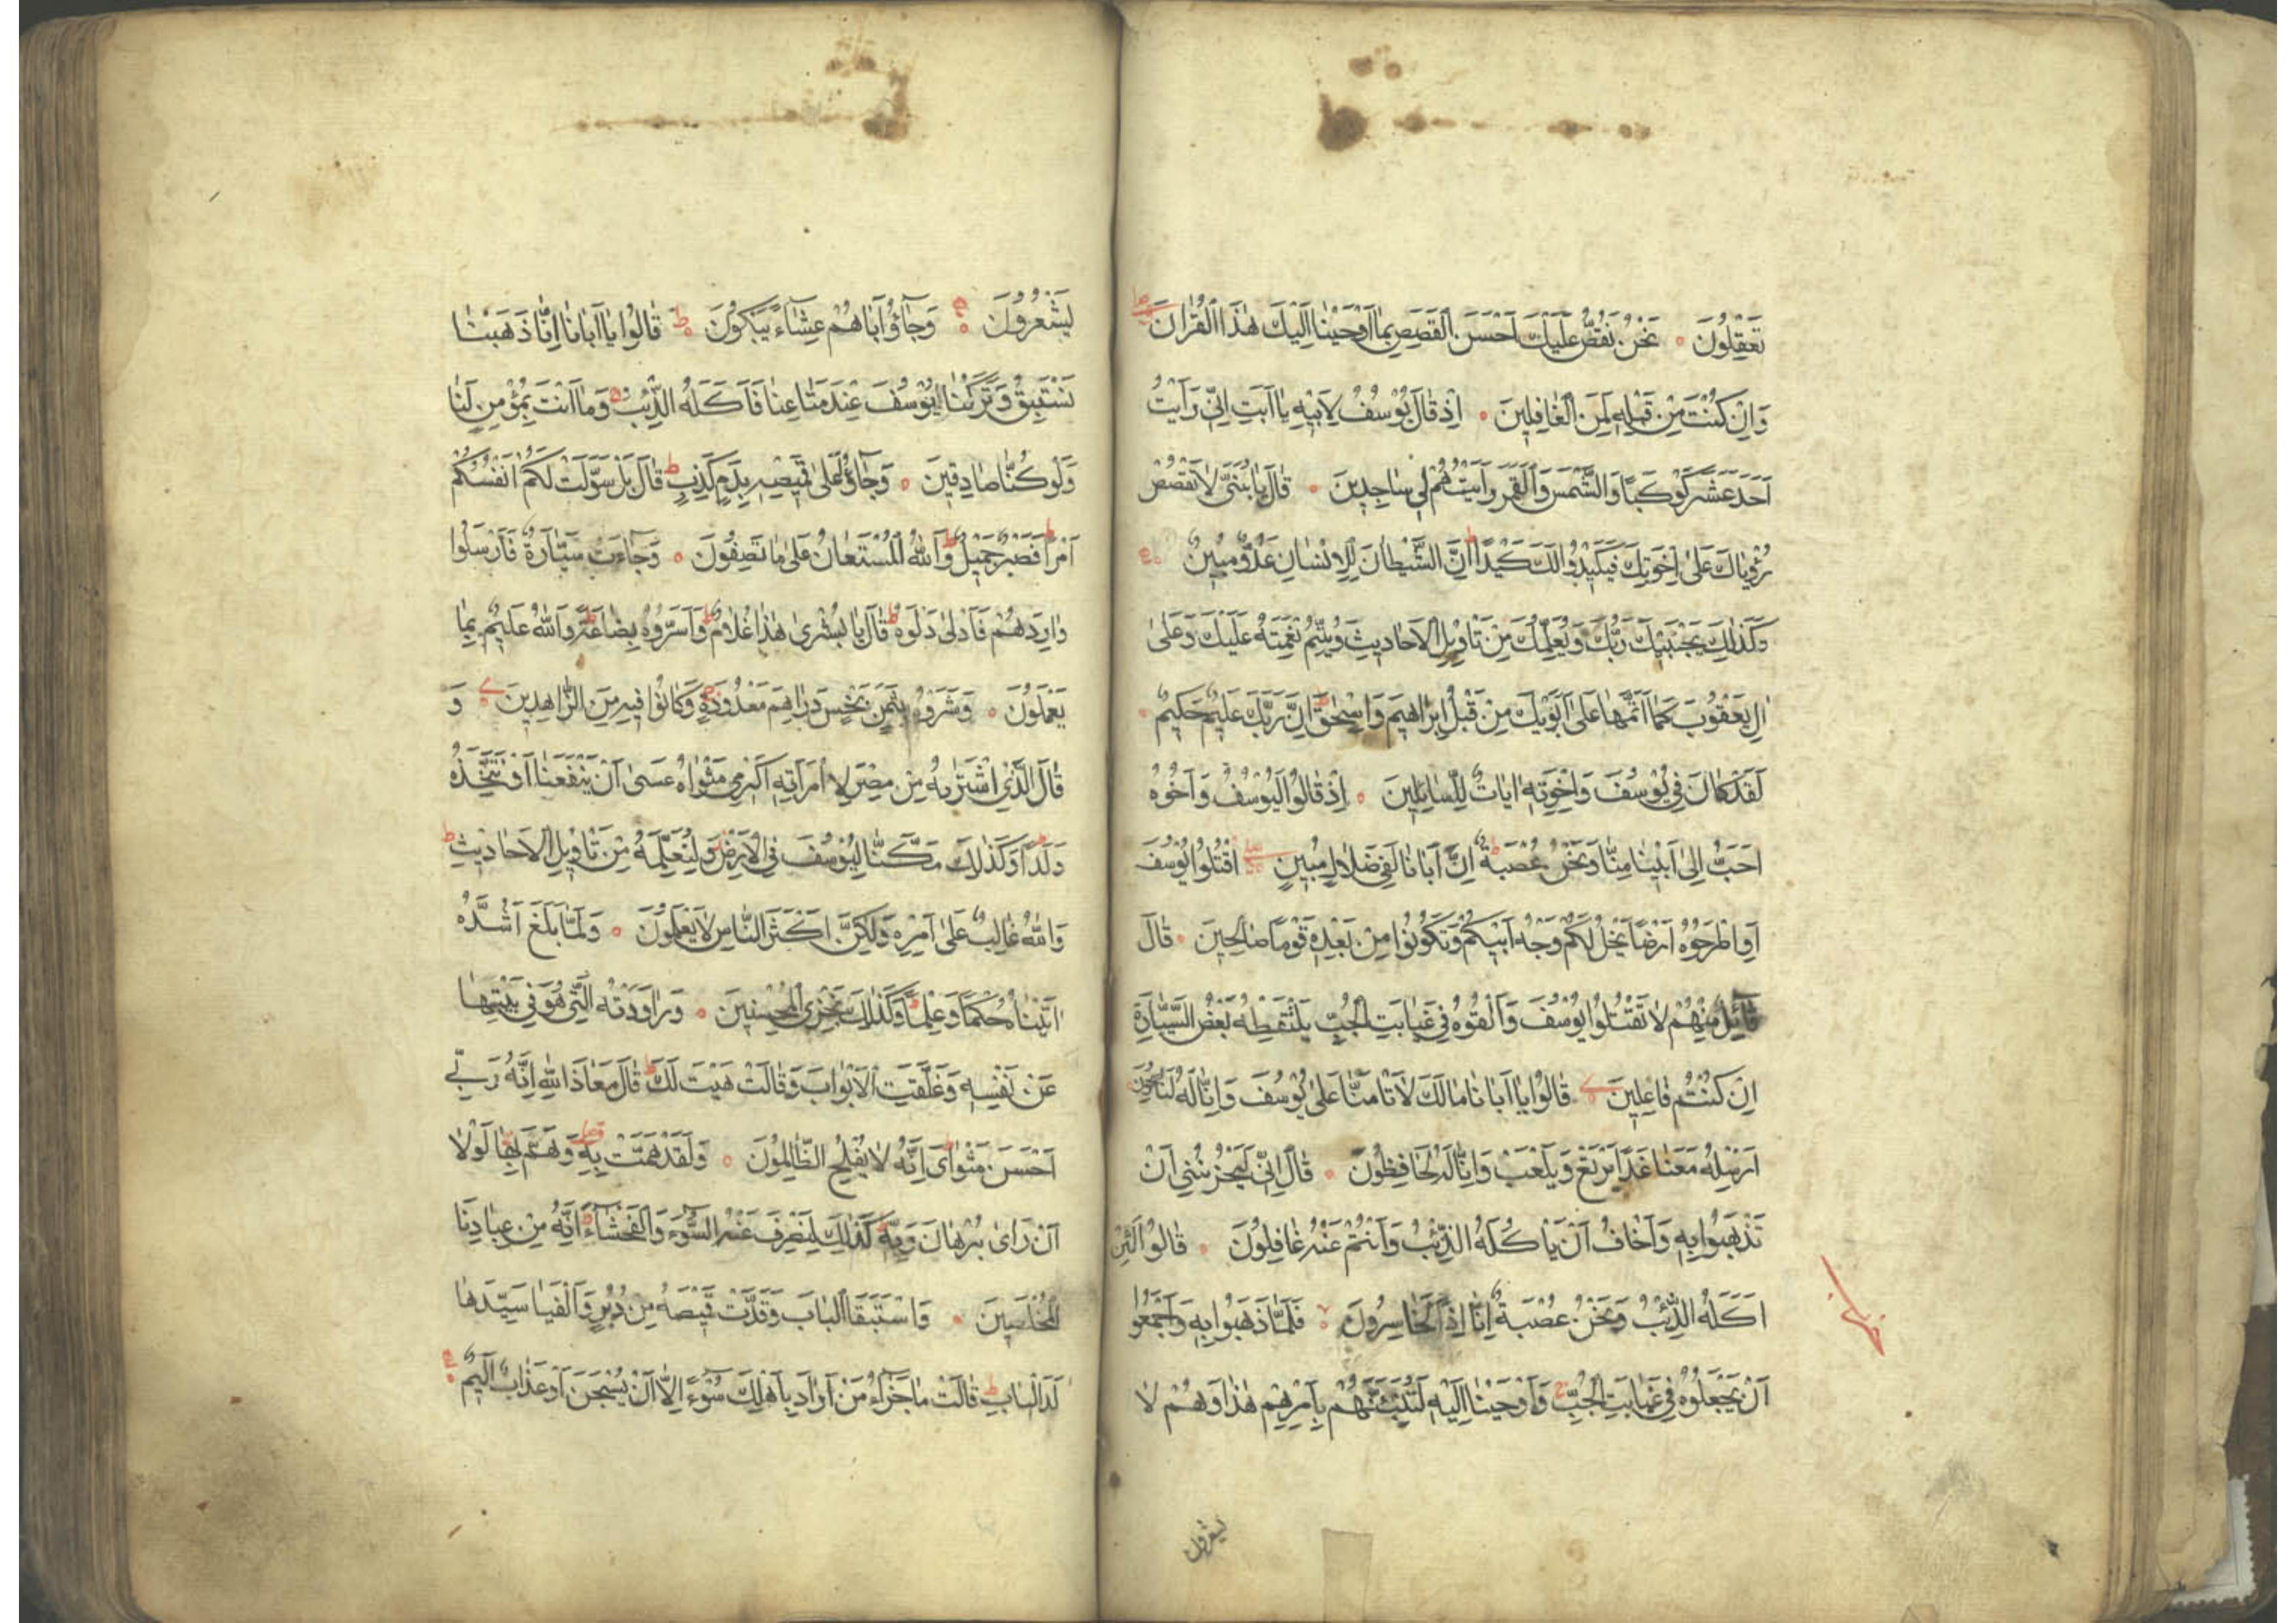 تَعْقِلُونَ ۝ نَحْنُ نَقُصُّ عَلَيْكَ اَحْسَنَ الْقَصَصِ بِمَا اَوْحَيْنَا اِلَيْكَ هٰذَا الْقُرْاٰنَ
وَاِنْ كُنْتَ مِنْ قَبْلِهٖ لَمِنَ الْغَافِلِينَ ۝ اِذْ قَالَ يُوْسُفُ لِاَبِيْهِ يَا اَبَتِ اِنِّى رَاَيْتُ
اَحَدَ عَشَرَ كَوْكَبًا وَالشَّمْسَ وَالْقَمَرَ رَاَيْتُهُمْ لِى سَاجِدِينَ ۝ قَالَ يَا بُنَىَّ لَا تَقْصُصْ
رُؤْيَاكَ عَلٰى اِخْوَتِكَ فَيَكِيْدُوا لَكَ كَيْدًا ط اِنَّ الشَّيْطَانَ لِلْاِنْسَانِ عَدُوٌّ مُبِينٌ ۝
وَكَذٰلِكَ يَجْتَبِيْكَ رَبُّكَ وَيُعَلِّمُكَ مِنْ تَاْوِيْلِ الْاَحَادِيثِ وَيُتِمُّ نِعْمَتَهُ عَلَيْكَ وَعَلٰى
اٰلِ يَعْقُوْبَ كَمَا اَتَمَّهَا عَلٰى اَبَوَيْكَ مِنْ قَبْلُ اِبْرَاهِيمَ وَاِسْحٰقَ ط اِنَّ رَبَّكَ عَلِيْمٌ حَكِيمٌ ۝
لَقَدْ كَانَ فِى يُوْسُفَ وَاِخْوَتِهٖ اٰيَاتٌ لِلسَّائِلِينَ ۝ اِذْ قَالُوا لَيُوْسُفُ وَاَخُوْهُ
اَحَبُّ اِلٰى اَبِيْنَا مِنَّا وَنَحْنُ عُصْبَةٌ ط اِنَّ اَبَانَا لَفِى ضَلَالٍ مُبِينٍ ۝ اقْتُلُوا يُوْسُفَ
اَوِ اطْرَحُوْهُ اَرْضًا يَخْلُ لَكُمْ وَجْهُ اَبِيْكُمْ وَتَكُوْنُوا مِنْ بَعْدِهٖ قَوْمًا صَالِحِينَ ۝ قَالَ
قَائِلٌ مِنْهُمْ لَا تَقْتُلُوا يُوْسُفَ وَاَلْقُوْهُ فِى غَيَابَتِ الْجُبِّ يَلْتَقِطْهُ بَعْضُ السَّيَّارَةِ
اِنْ كُنْتُمْ فَاعِلِينَ ۝ قَالُوا يَا اَبَانَا مَا لَكَ لَا تَاْمَنَّا عَلٰى يُوْسُفَ وَاِنَّا لَهُ لَنَاصِحُوْنَ ۝
اَرْسِلْهُ مَعَنَا غَدًا يَرْتَعْ وَيَلْعَبْ وَاِنَّا لَهُ لَحَافِظُوْنَ ۝ قَالَ اِنِّى لَيَحْزُنُنِى اَنْ
تَذْهَبُوا بِهٖ وَاَخَافُ اَنْ يَاْكُلَهُ الذِّئْبُ وَاَنْتُمْ عَنْهُ غَافِلُوْنَ ۝ قَالُوا لَئِنْ
اَكَلَهُ الذِّئْبُ وَنَحْنُ عُصْبَةٌ اِنَّا اِذًا لَخَاسِرُوْنَ ۝ فَلَمَّا ذَهَبُوا بِهٖ وَاَجْمَعُوا
اَنْ يَجْعَلُوْهُ فِى غَيَابَتِ الْجُبِّ ج وَاَوْحَيْنَا اِلَيْهِ لَتُنَبِّئَنَّهُمْ بِاَمْرِهِمْ هٰذَا وَهُمْ لَا
يشعرون
يَشْعُرُوْنَ ۝ وَجَاؤُا اَبَاهُمْ عِشَاءً يَبْكُوْنَ ۝ ط قَالُوا يَا اَبَانَا اِنَّا ذَهَبْنَا
نَسْتَبِقُ وَتَرَكْنَا يُوْسُفَ عِنْدَ مَتَاعِنَا فَاَكَلَهُ الذِّئْبُ وَمَا اَنْتَ بِمُؤْمِنٍ لَنَا
وَلَوْ كُنَّا صَادِقِينَ ۝ وَجَاؤُ عَلٰى قَمِيْصِهٖ بِدَمٍ كَذِبٍ ط قَالَ بَلْ سَوَّلَتْ لَكُمْ اَنْفُسُكُمْ
اَمْرًا ط فَصَبْرٌ جَمِيْلٌ ط وَاللّٰهُ الْمُسْتَعَانُ عَلٰى مَا تَصِفُوْنَ ۝ وَجَاءَتْ سَيَّارَةٌ فَاَرْسَلُوا
وَارِدَهُمْ فَاَدْلٰى دَلْوَهُ ط قَالَ يَا بُشْرٰى هٰذَا غُلَامٌ ط وَاَسَرُّوْهُ بِضَاعَةً ط وَاللّٰهُ عَلِيْمٌ بِمَا
يَعْمَلُوْنَ ۝ وَشَرَوْهُ بِثَمَنٍ بَخْسٍ دَرَاهِمَ مَعْدُوْدَةٍ ج وَكَانُوْا فِيْهِ مِنَ الزَّاهِدِينَ ۝ وَ
قَالَ الَّذِى اشْتَرٰيهُ مِنْ مِصْرَ لِامْرَاَتِهٖ اَكْرِمِى مَثْوَاهُ عَسٰى اَنْ يَنْفَعَنَا اَوْ نَتَّخِذَهُ
وَلَدًا ط وَكَذٰلِكَ مَكَّنَّا لِيُوْسُفَ فِى الْاَرْضِ وَلِنُعَلِّمَهُ مِنْ تَاْوِيْلِ الْاَحَادِيْثِ ط
وَاللّٰهُ غَالِبٌ عَلٰى اَمْرِهٖ وَلٰكِنَّ اَكْثَرَ النَّاسِ لَا يَعْلَمُوْنَ ۝ وَلَمَّا بَلَغَ اَشُدَّهُ
اٰتَيْنَاهُ حُكْمًا وَعِلْمًا ط وَكَذٰلِكَ نَجْزِى الْمُحْسِنِينَ ۝ وَرَاوَدَتْهُ الَّتِى هُوَ فِى بَيْتِهَا
عَنْ نَفْسِهٖ وَغَلَّقَتِ الْاَبْوَابَ وَقَالَتْ هَيْتَ لَكَ ط قَالَ مَعَاذَ اللّٰهِ اِنَّهُ رَبِّى
اَحْسَنَ مَثْوَاىَ ط اِنَّهُ لَا يُفْلِحُ الظَّالِمُوْنَ ۝ وَلَقَدْ هَمَّتْ بِهٖ وَهَمَّ بِهَا لَوْلَا
اَنْ رَاٰى بُرْهَانَ رَبِّهٖ ط كَذٰلِكَ لِنَصْرِفَ عَنْهُ السُّوْءَ وَالْفَحْشَاءَ ط اِنَّهُ مِنْ عِبَادِنَا
الْمُخْلَصِينَ ۝ وَاسْتَبَقَا الْبَابَ وَقَدَّتْ قَمِيْصَهُ مِنْ دُبُرٍ وَاَلْفَيَا سَيِّدَهَا
لَدَا الْبَابِ ط قَالَتْ مَا جَزَاءُ مَنْ اَرَادَ بِاَهْلِكَ سُوْءًا اِلَّا اَنْ يُسْجَنَ اَوْ عَذَابٌ اَلِيْمٌ ۝